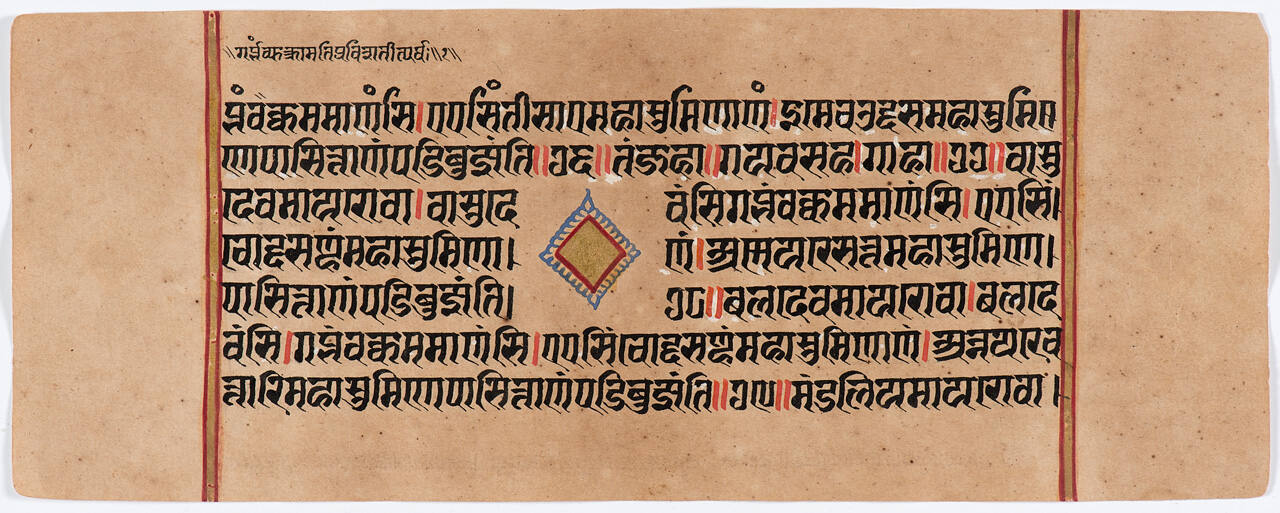 ॥गर्ब्भंव्युत्क्रामतिप्रविशतीत्यर्थः॥१॥
ब्भंवक्कममाणंसि।एएसिंतीसाएमहासुमिणाणं।इमेचउद्दसमहासुमि
णेपासित्ताणंपडिबुज्झंति॥७६॥तंजहा॥गयवसह।गाहा॥७७॥वासु
देवमायरोवा।वासुदे वंसिगब्भंवक्कममाणंसि।एएसिं।
चोद्दसण्हंमहासुमिणा। णं।अण्णयरेसत्तमहासुमिणे।
पासित्ताणंपडिबुज्झंति। ७८॥बलदेवमायरोवा।बलदे
वंसि।गब्भंवक्कममाणंसि।एएसिंचोद्दसण्हंमहासुमिणाणं।अन्नयरेच
त्तारिमहासुमिणेपासित्ताणंपडिबुज्झंति॥७९॥मंडलियमायरोवा।